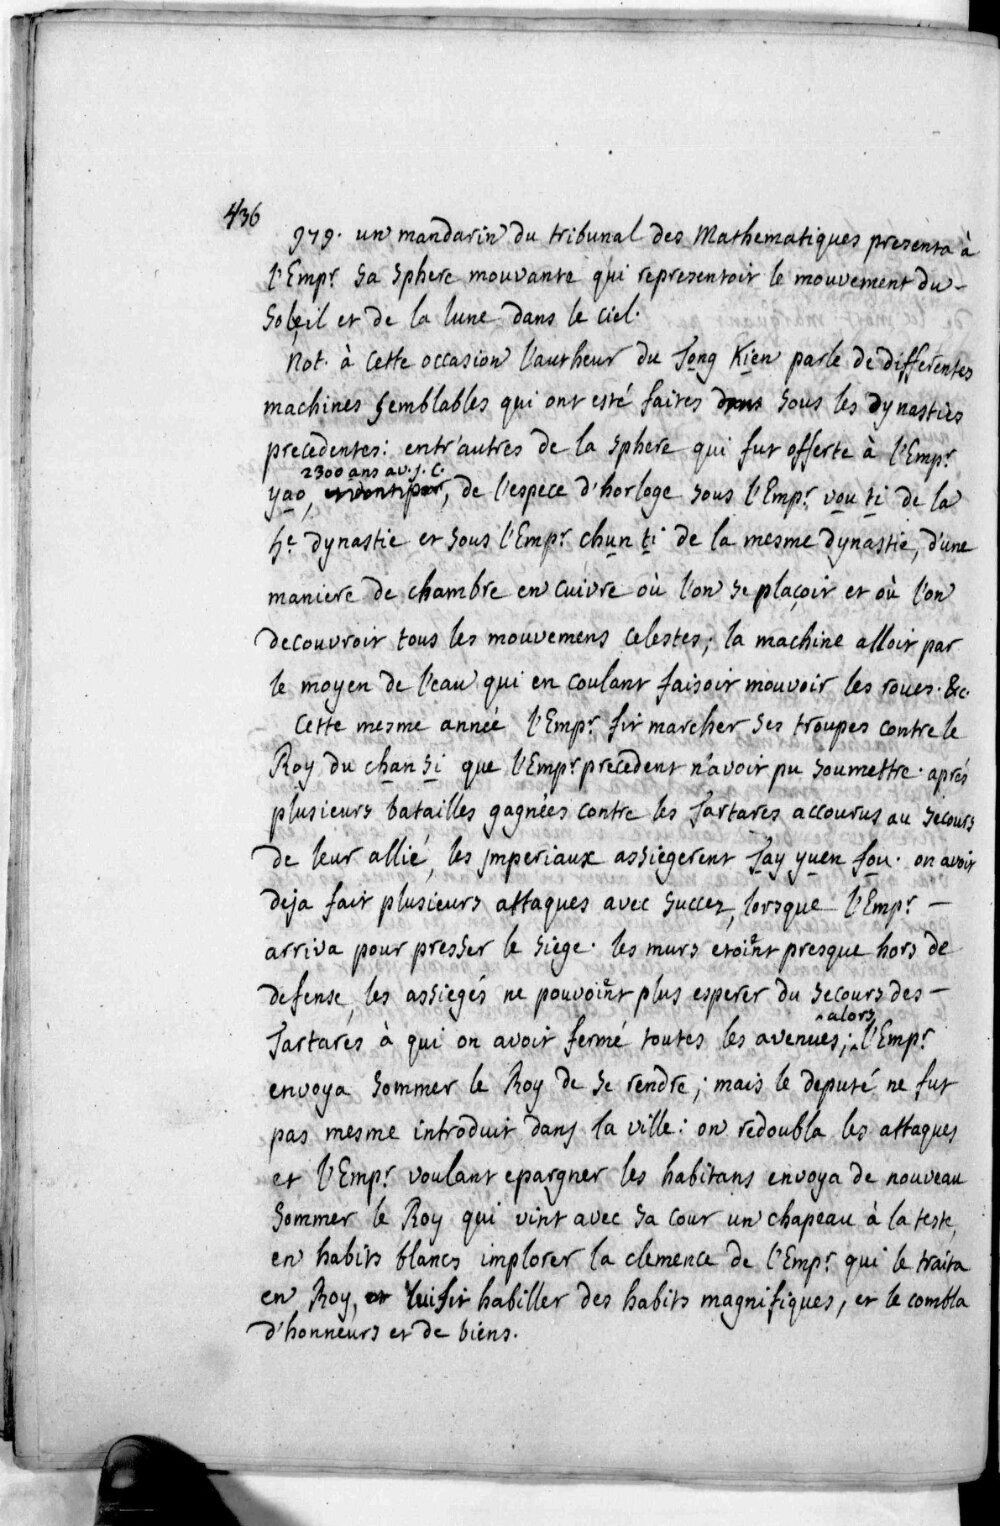 436
979. un mandarin du tribunal des Mathematiques presenta à
l'Empr. sa sphere mouvante qui representoit le mouvement du
Soleil et de la lune dans le ciel.
Not. à cette occasion l'autheur du Tong Kien parle de differentes
machines semblables qui ont esté faites sous les dynasties
precedentes: entr'autres de la sphere qui fut offerte à l'Empr.
2300 ans av. j. C.
yao, de l'espece d'horloge sous l'Empr. vou ti de la
5e dynastie et sous l'Empr. chun ti de la mesme dynastie, d'une
maniere de chambre en cuivre où l'on se plaçoit et où l'on
decouvroit tous les mouvemens celestes; la machine alloit par
le moyen de l'eau qui en coulant faisoit mouvoir les roues. &c.
Cette mesme année l'Empr. fit marcher ses troupes contre le
Roy du chan si que l'Empr. precedent n'avoit pu soumettre. aprés
plusieurs batailles gagnées contre les Tartares accourus au secours
de leur allié, les jmperiaux assiegerent Tay yuen fou. on avoit
deja fait plusieurs attaques avec succez, lorsque l'Empr. —
arriva pour presser le siege. les murs etoient presque hors de
defense, les assiegés ne pouvoient plus esperer du secours des —
alors
Tartares à qui on avoit fermé toutes les avenues; l'Empr.
envoya sommer le Roy de se rendre; mais le deputé ne fut
pas mesme introduit dans la ville: on redoubla les attaques
et l'Empr. voulant epargner les habitans envoya de nouveau
sommer le Roy qui vint avec sa cour un chapeau à la teste,
en habits blancs implorer la clemence de l'Empr. qui le traita
en Roy, lui fit habiller des habits magnifiques, et le combla
d'honneurs et de biens.